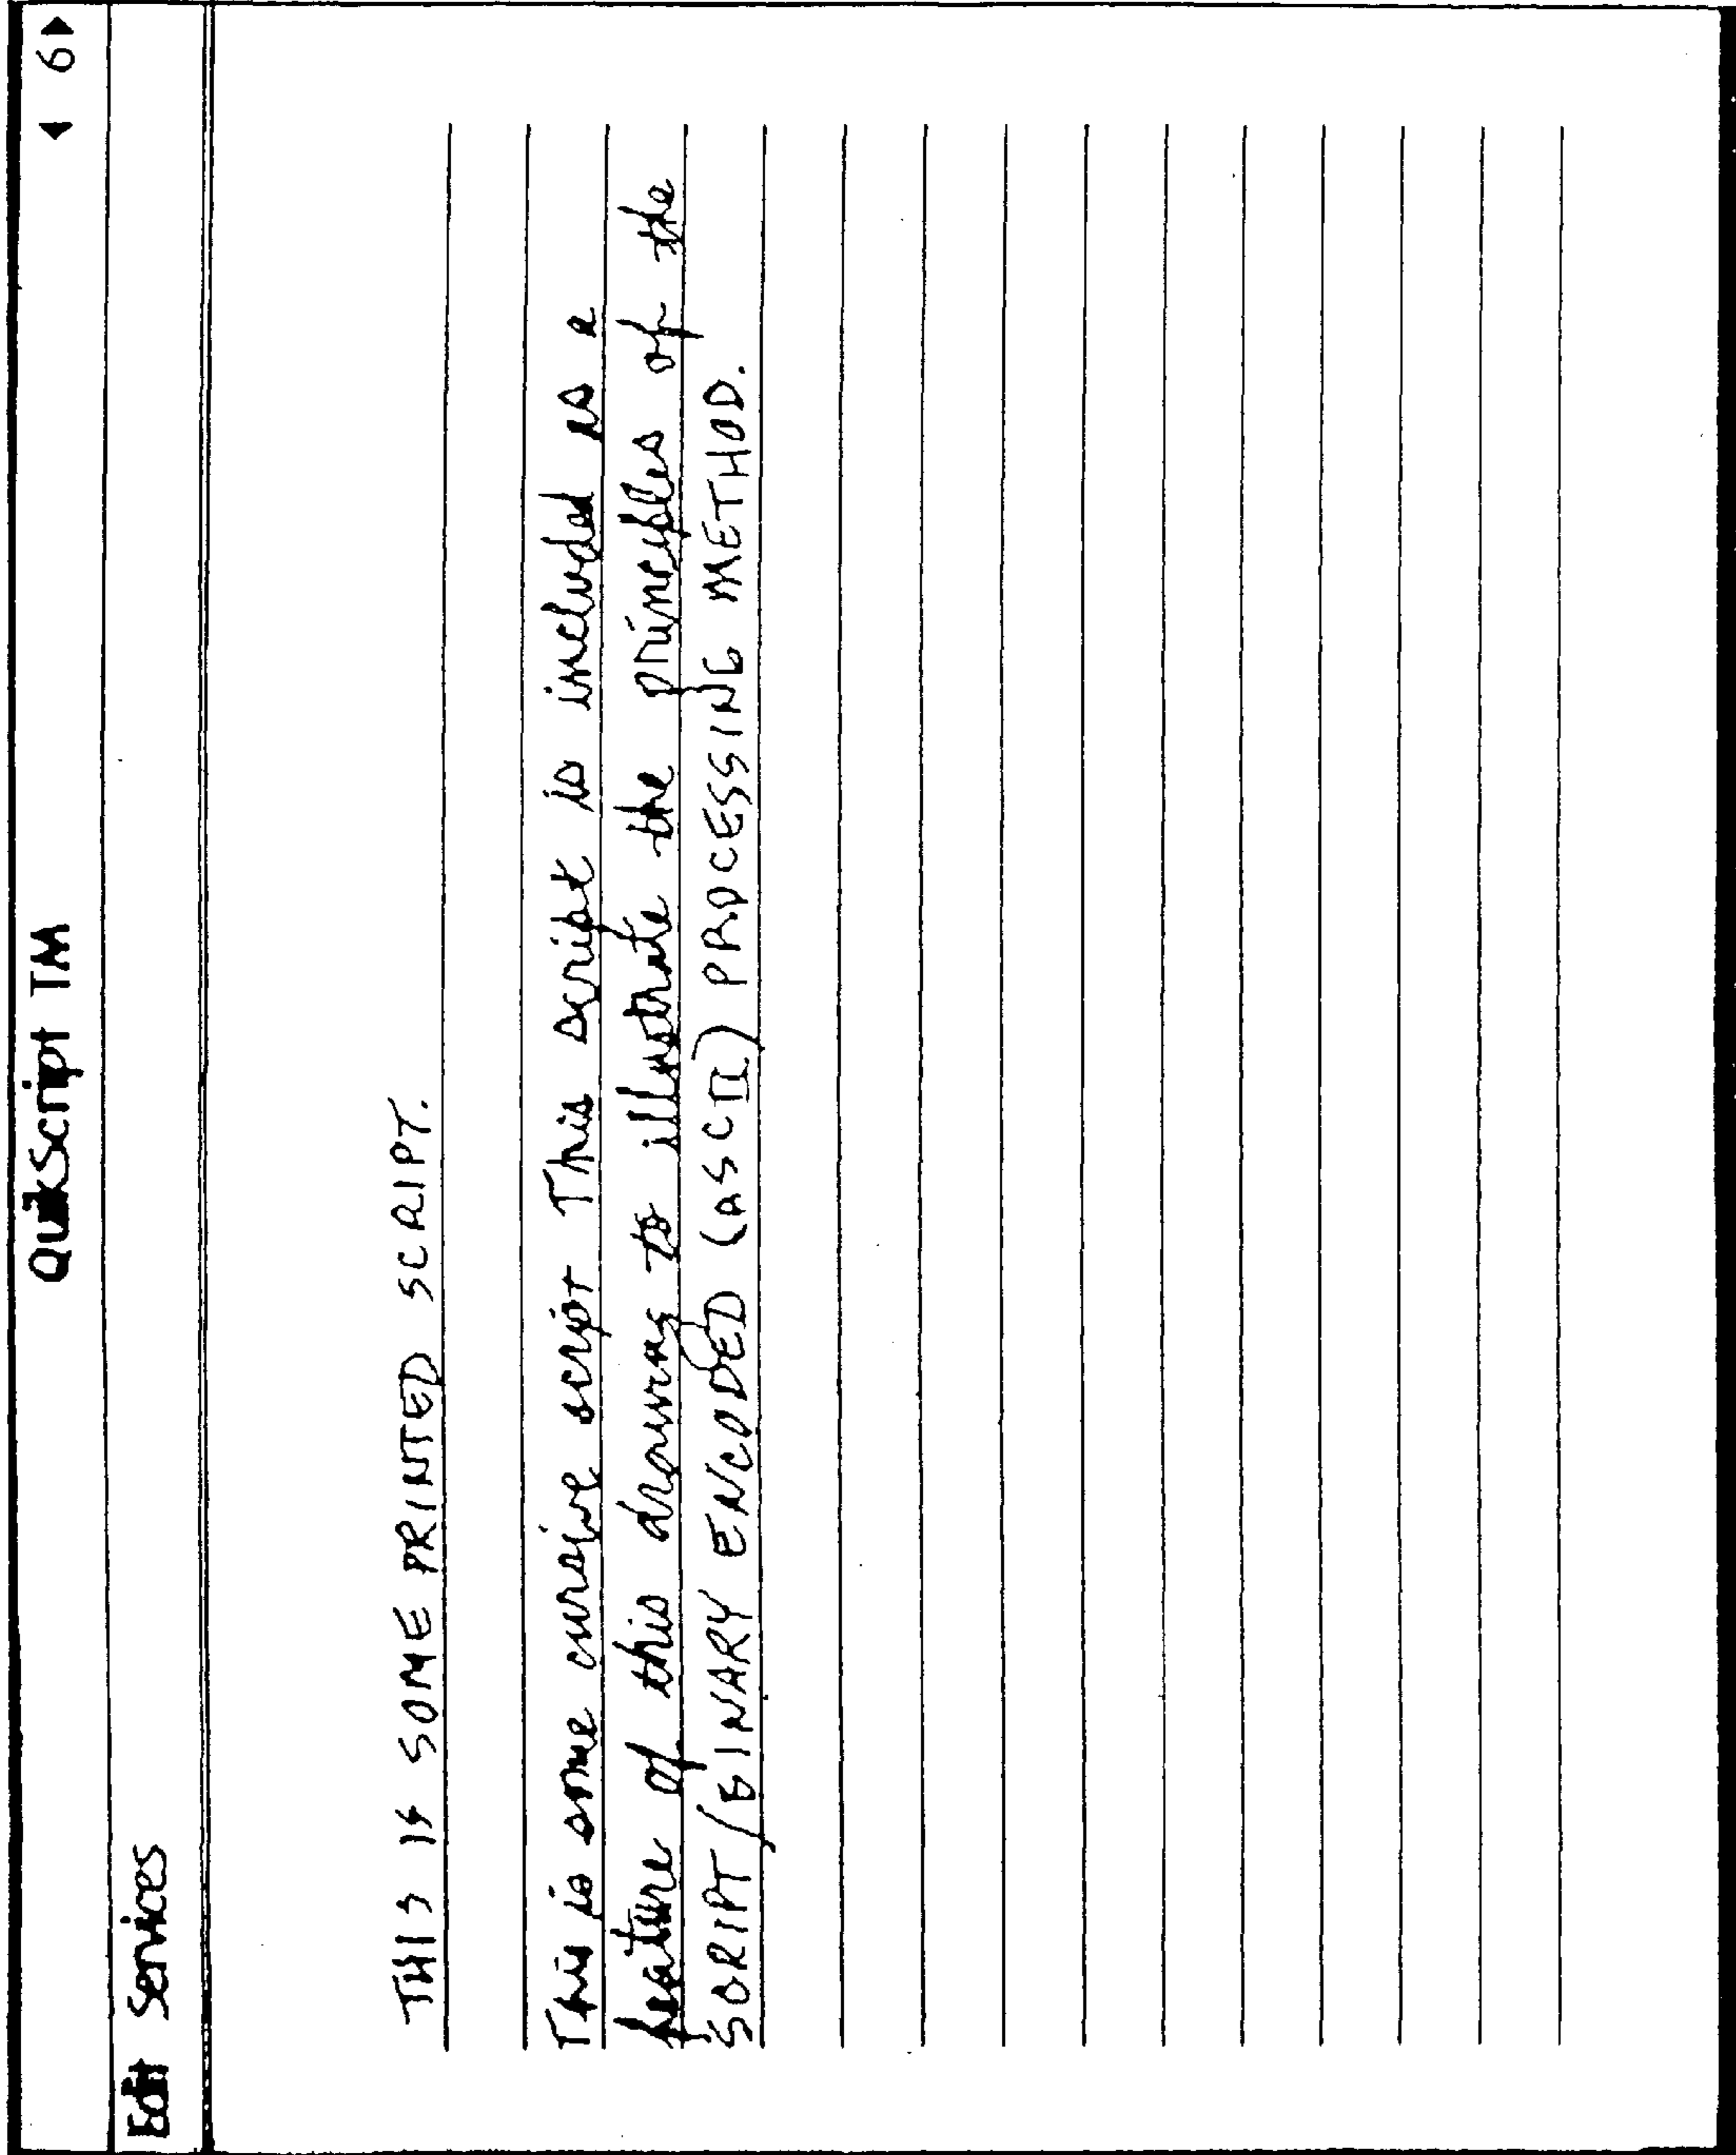 QuikScript TM ◄ 6►
Edit Services
THIS IS SOME PRINTED SCRIPT.
This is some cursive script This script is included as a
feature of this drawing to illustrate the principles of the
SCRIPT/BINARY ENCODED (ASCII) PROCESSING METHOD.